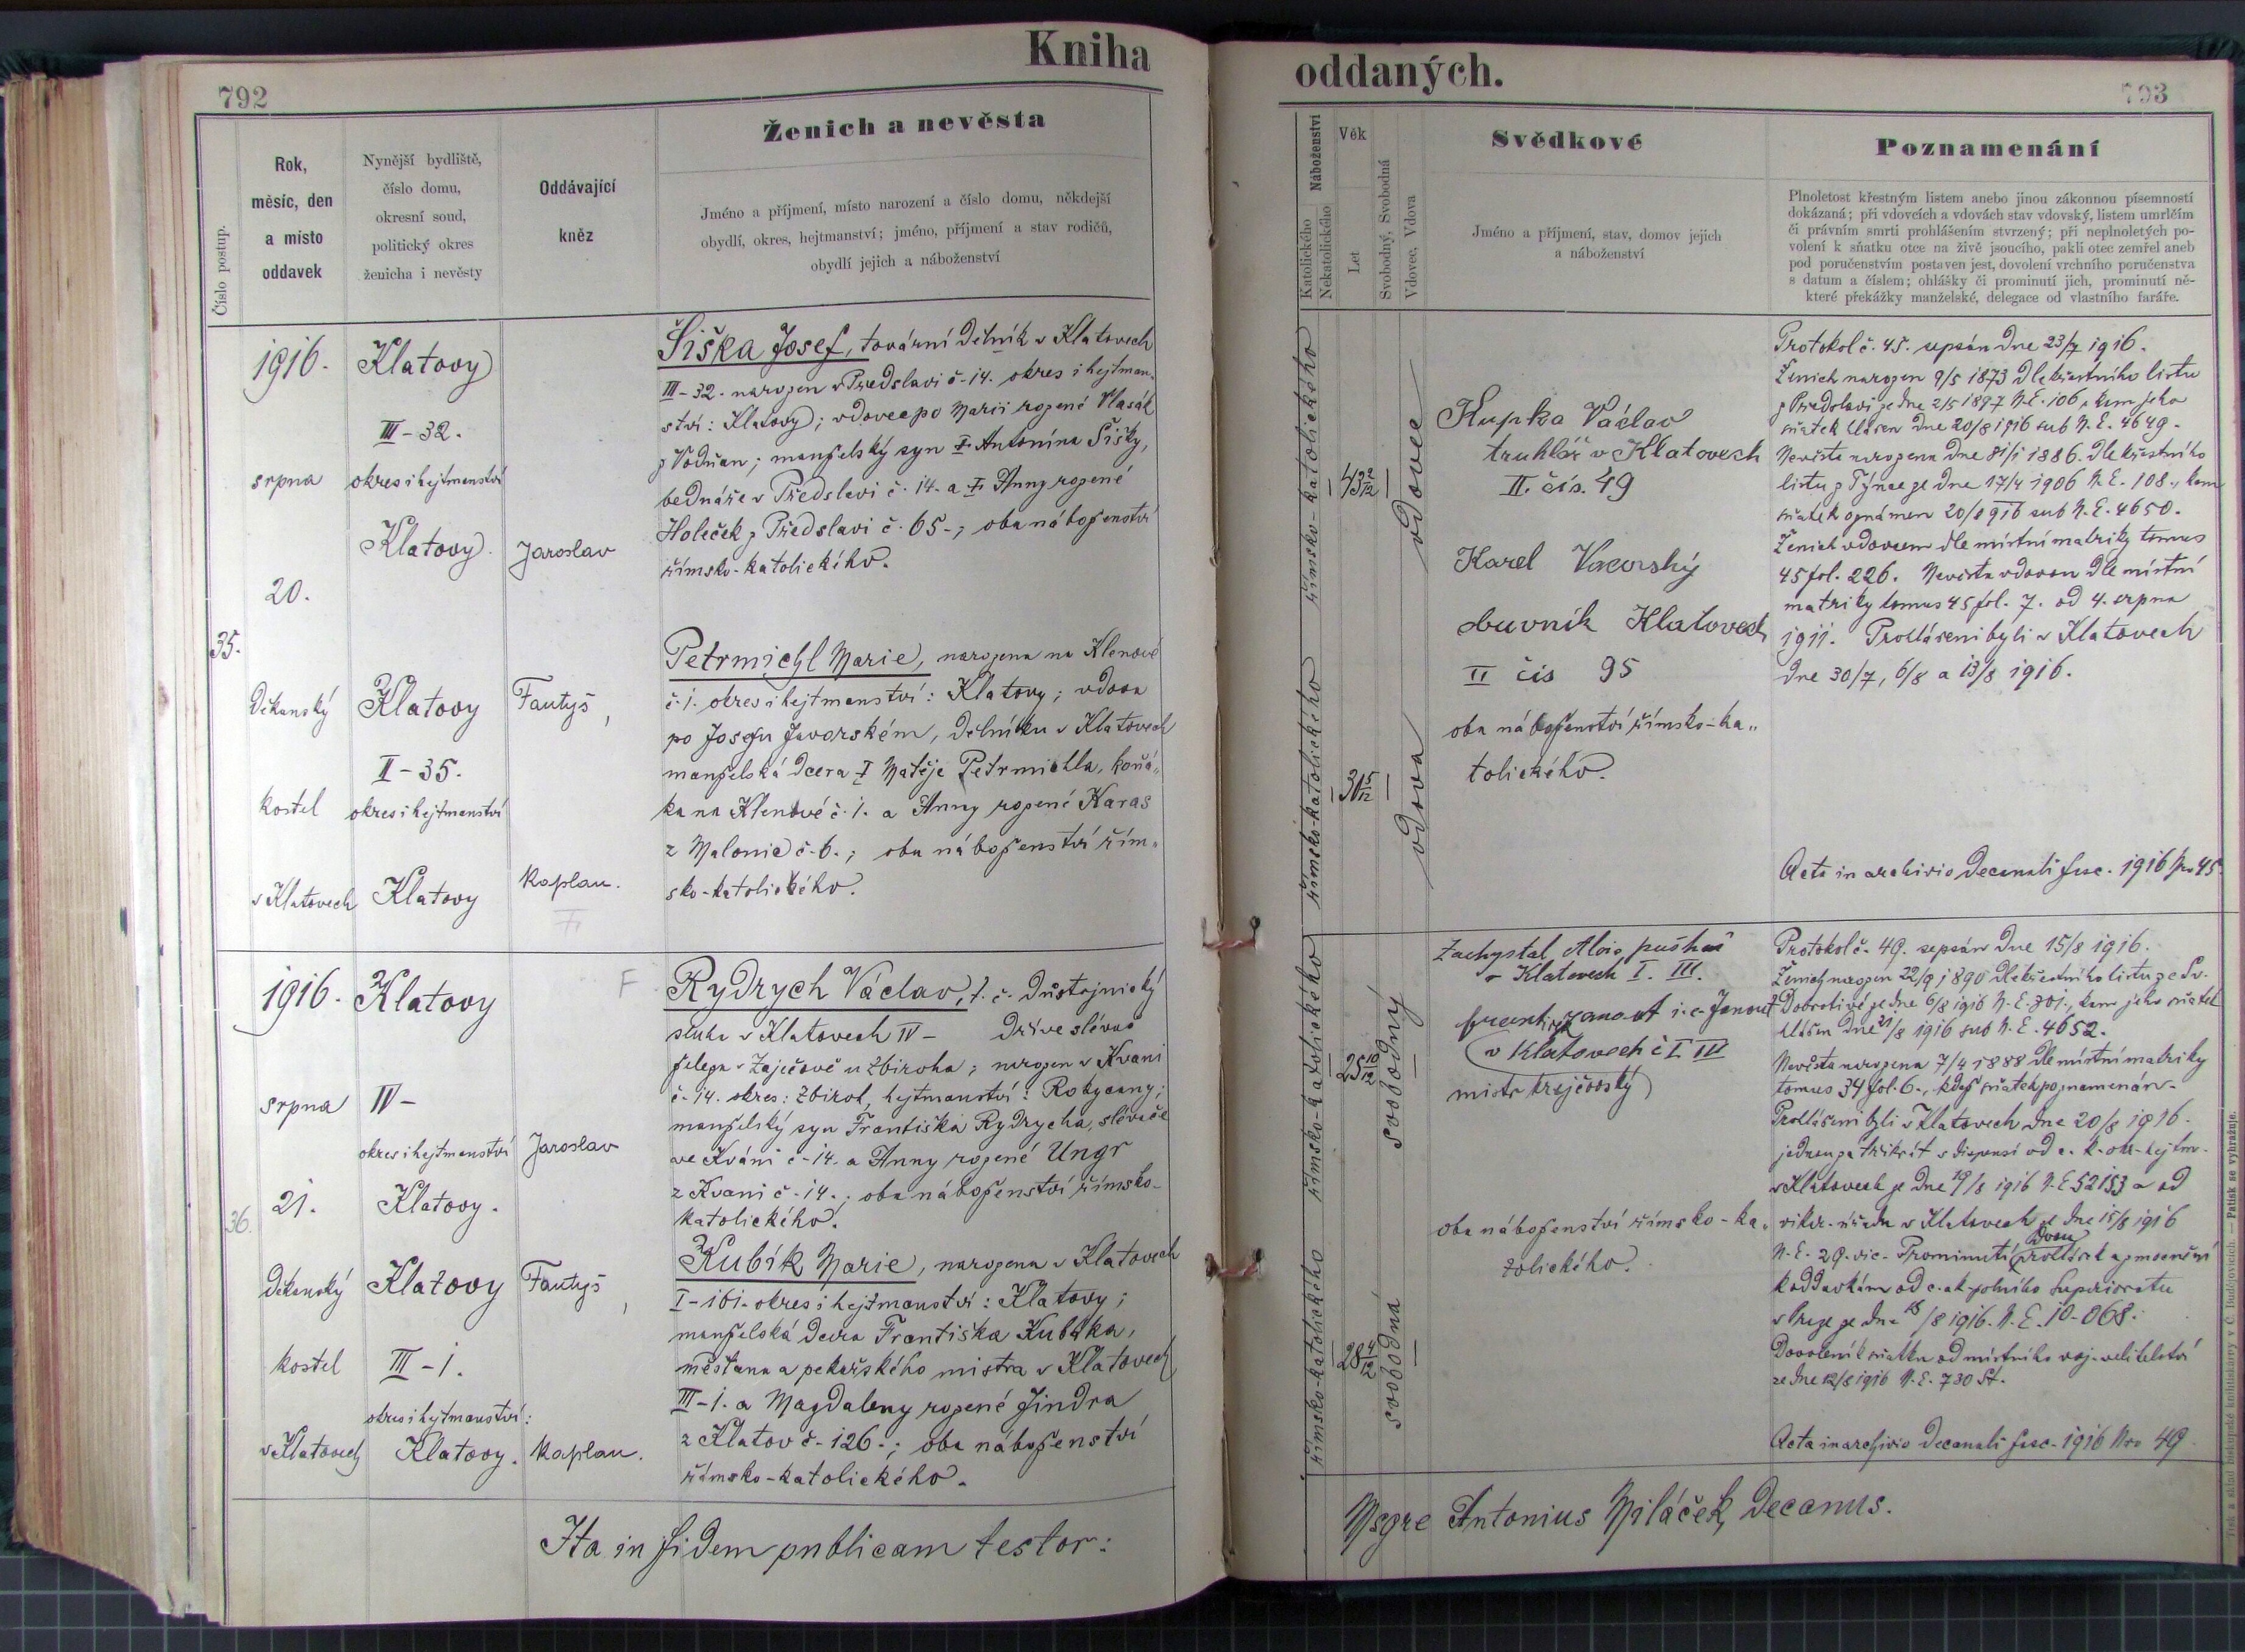 Kniha
oddaných.
792
793
Číslo postup.
Rok,
měsíc, den
a místo
oddavek
Nynější bydliště,
číslo domu,
okresní soud,
politický okres
ženicha i nevěsty
Oddávající
kněz
Ženich a nevěsta
Jméno a příjmení, místo narození a číslo domu, někdejší
obydlí, okres, hejtmanství; jméno, příjmení a stav rodičů,
obydlí jejich a náboženství
Náboženství
Katolického
Nekatolického
Věk
Let
Svobodný, Svobodná
Vdovec, Vdova
Svědkové
Jméno a příjmení, stav, domov jejich
a náboženství
Poznamenání
Plnoletost křestným listem anebo jinou zákonnou písemností
dokázaná; při vdovcích a vdovách stav vdovský, listem umrlčím
či právním smrti prohlášením stvrzený; při neplnoletých po-
volení k sňatku otce na živě jsoucího, pakli otec zemřel aneb
pod poručenstvím postaven jest, dovolení vrchního poručenstva
s datum a číslem; ohlášky či prominutí jich, prominutí ně-
které překážky manželské, delegace od vlastního faráře.
35.
1916.
srpna
20.
Děkanský
kostel
v Klatovech
Klatovy
III-32.
okres i hejtmanství
Klatovy.
Klatovy
II-35.
okres i hejtmanství
Klatovy
Jaroslav
Fantyš,
kaplan.
Šiška Josef, tovární dělník v Klatovech
III-32. narozen v Předslavi č-14. okres i hejtman-
ství: Klatovy; vdovec po Marii rozené Vlasák
z Vodňan; manželský syn † Antonína Šišky,
bednáře v Předslavi č. 14. a † Anny rozené
Holeček z Předslavi č. 65-; oba náboženství
římsko-katolického.
Petrmichl Marie, narozena na Klenové
č-1. okres i hejtmanství: Klatovy; vdova
po Josefu Javorském, dělníku v Klatovech
manželská dcera † Matěje Petrmichla, koňá„
ka na Klenové č-1. a Anny rozené Karas
z Malonic č-6.; oba náboženství řím„
sko-katolického.
římsko-katolického
43 2/12
vdovec
římsko-katolického
30 5/12
vdova
Kupka Václav
truhlář v Klatovech
II. čís. 49
Karel Vacovský
obuvník Klatovech
II čís 95
oba náboženství římsko-ka„
tolického.
Protokol č. 45. sepsán dne 23/7 1916.
Ženich narozen 9/5 1873 dle křestního listu
z Předslavi ze dne 2/5 1897 N.E. 106, kam jeho
sňatek hlášen dne 20/8 1916 sub N.E. 4649.
Nevěsta narozena dne 31/1 1886. Dle křestního
listu z Týnce ze dne 17/4 1906 N.E. 108., kam
sňatek oznámen 20/8 916 sub N.E. 4650.
Ženich vdovcem dle místní matriky tomus
45 fol. 226. Nevěsta vdovou dle místní
matriky tomus 45 fol. 7. od 4. srpna
1911. Prohlášeni byli v Klatovech
dne 30/7, 6/8 a 13/8 1916.
Acta in archivio decanali fasc. 1916 Nro 45.
36.
1916.
srpna
21.
Děkanský
kostel
v Klatovech
Klatovy
IV-
okres i hejtmanství
Klatovy.
Klatovy
III-1.
okres i hejtmanství:
Klatovy.
Jaroslav
Fantyš,
kaplan.
F
Rydrych Václav, t. č. důstojnický
sluha v Klatovech IV- dříve slévač
železa v Zaječově u Zbiroha; narozen v Kvani
č-14. okres: Zbiroh, hejtmanství: Rokycany;
manželský syn Františka Rydrycha, slévače
ve Kváni č-14. a Anny rozené Ungr
z Kvani č-14.; oba náboženství římsko-
katolického.
Kubík Marie, narozena v Klatovech
I-161. okres i hejtmanství: Klatovy;
manželská dcera Františka Kubíka,
měšťana a pekařského mistra v Klatovech
III-1. a Magdaleny rozené Jindra
z Klatov č-126-; oba náboženství
římsko-katolického.
římsko-katolického
25 10/12
svobodný
římsko-katolického
28 4/12
svobodná
Zachystal Alois puškař
v Klatovech I. III.
Janout
v Klatovech č I III
mistr krejčovský
oba náboženství římsko-ka„
tolického.
Protokol č. 49. sepsán dne 15/8 1916.
Ženich narozen 22/9 1890 dle křestního listu ze Sv.
Dobrotivé ze dne 6/8 1916 N.E. 301., kam jeho sňatek
hlášen dne 21/8 1916 sub N.E. 4652.
Nevěsta narozena 7/4 1888 dle místní matriky
tomus 34 fol. 6., kdež sňatek poznamenán.
Prohlášeni byli v Klatovech dne 20/8 1916.
jednou za třikrát s dispensí od c. k. okr. hejtm.
v Klatovech ze dne 19/8 1916 N.E 52153 a od
vikar. úřadu v Klatovech ze dne 15/8 1916
N.E. 29. vic. Prominutí dvou prohlášek a zmocnění
k oddavkám od c. a k. polního Superiorátu
v Praze ze dne 18/8 1916. N.E. 10-068.
Dovolení k sňatku od místního voj. velitelství
ze dne 12/8 1916 N.E. 730 St.
Acta in archivio decanali fasc. 1916 Nro 49
Ita in fidem publicam testor:
Msgre Antonius Miláček, decanus.
Tisk a sklad biskupské knihtiskárny v Č. Budějovicích. — Patisk se vyhražuje.